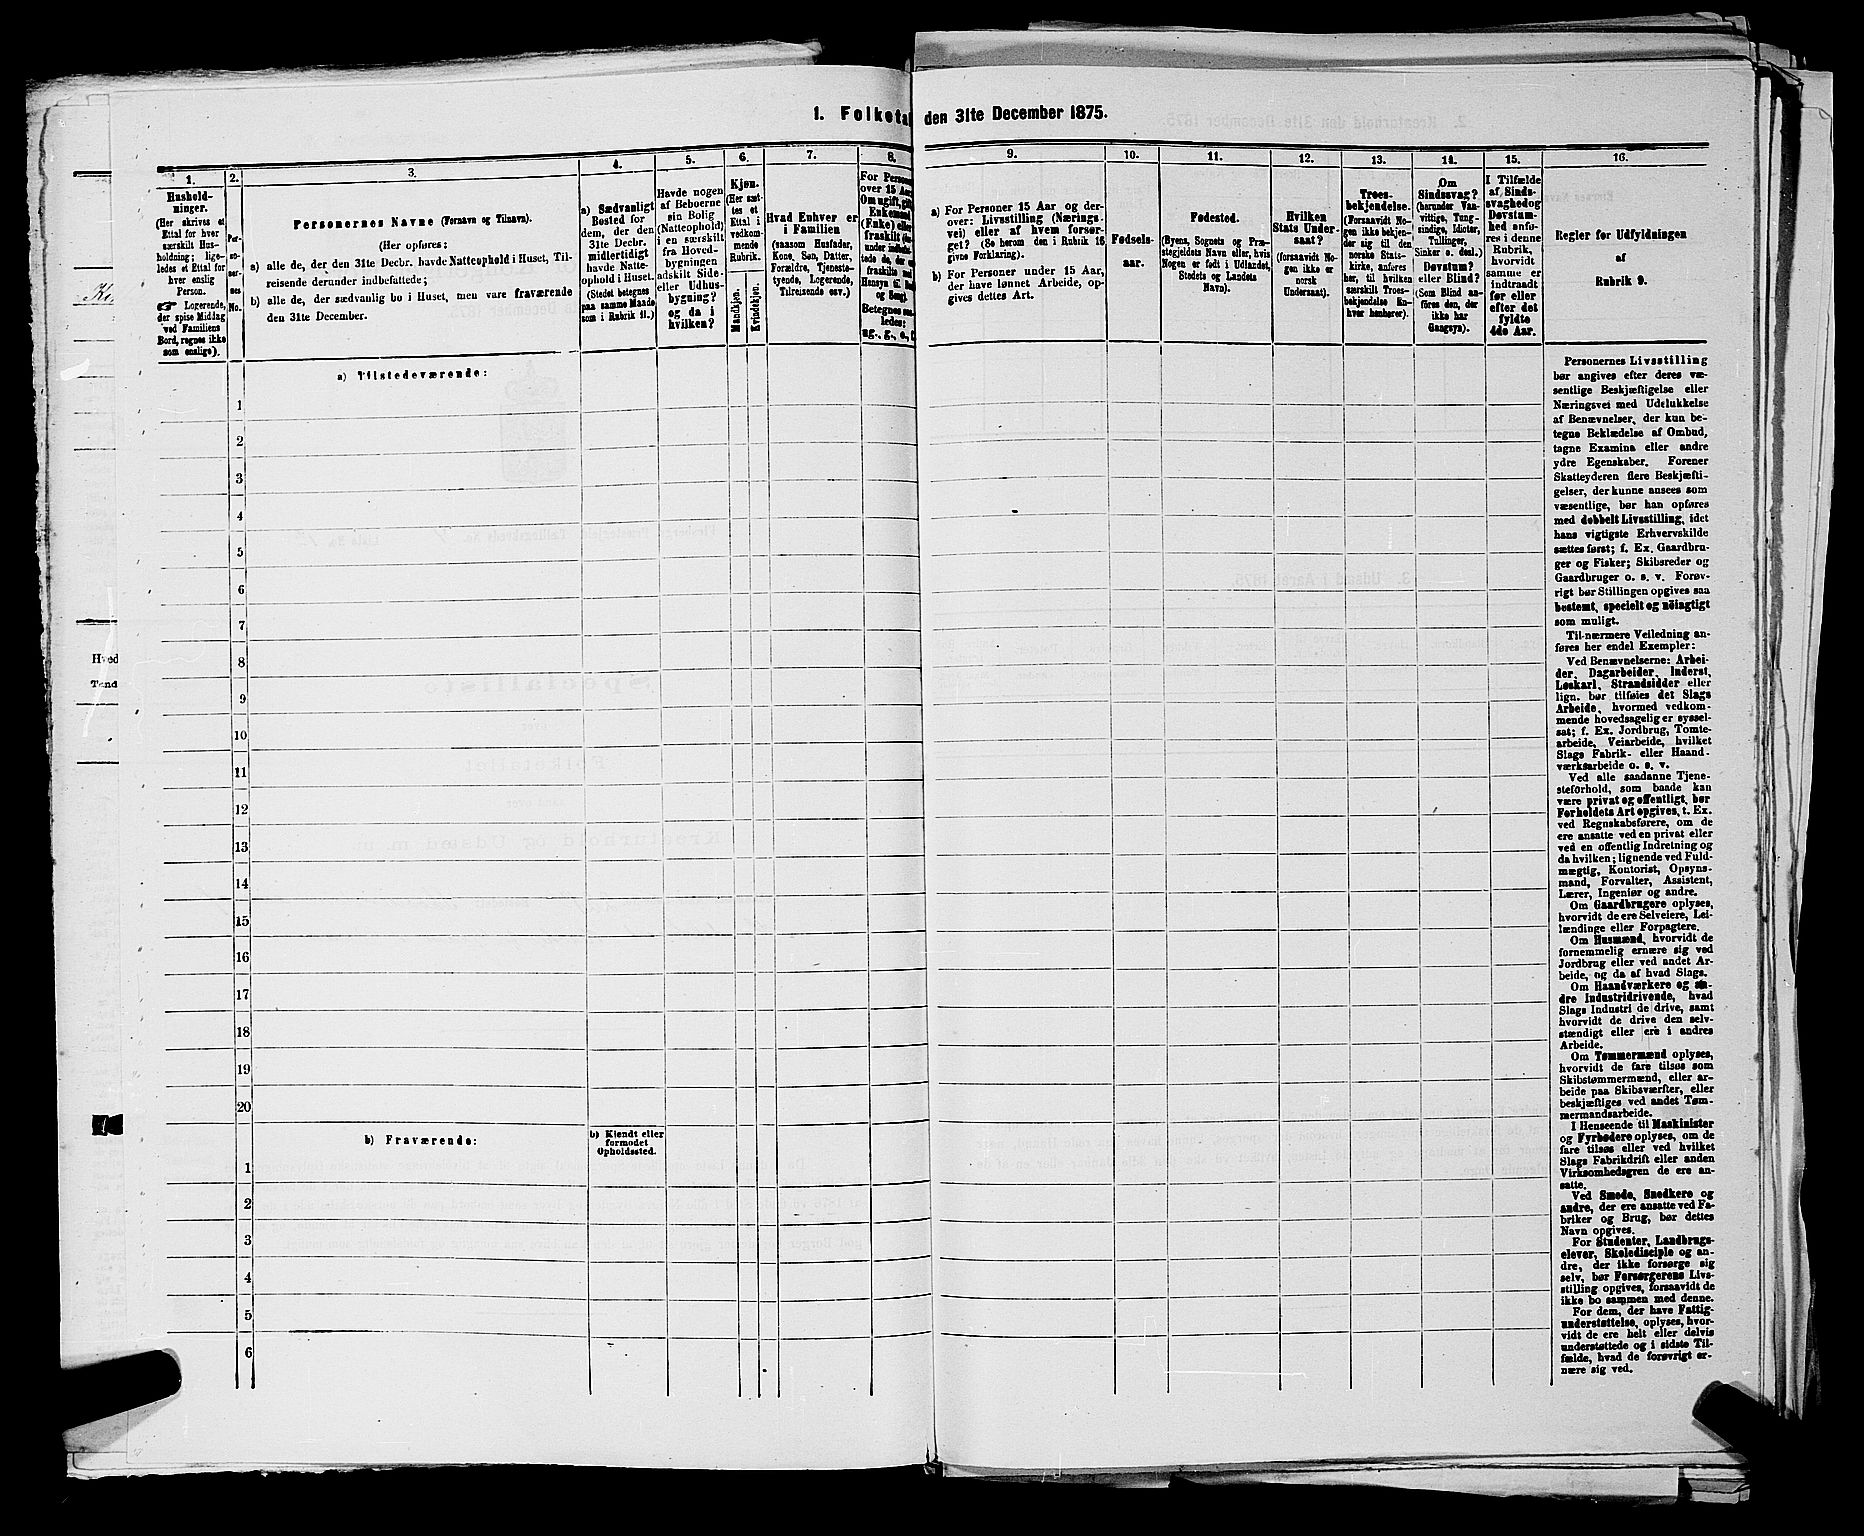 1. Folketal
den 31te December 1875.
1.
Hushold-
ninger.
(Her skrives et
Ettal for hver
særskilt Hus-
holdning; lige-
ledes et Ettal for
hver enslig
Person.
☞ Logerende,
der spise Middag
ved Familiens
Bord, regnes ikke
som enslige).
2.
Per-
so-
ner-
nes
No.
3.
Personernes Navne (Fornavn og Tilnavn).
(Her opføres:
a) alle de, der den 31te Decbr. havde Natteophold i Huset, Til-
reisende derunder indbefattede;
b) alle de, der sædvanlig bo i Huset, men vare fraværende
den 31te December.
4.
a) Sædvanligt
Bosted for
dem, der den
31te Decbr.
midlertidigt
havde Natte-
ophold i Huset.
(Stedet betegnes
paa samme Maade
som i Rubrik 11.)
5.
Havde nogen
af Beboerne
sin Bolig
(Natteophold)
i en særskilt
fra Hoved-
bygningen
adskilt Side-
eller Udhus-
bygning?
og da i
hvilken?
6.
Kjøn.
(Her sæt-
tes et
Ettal i
vedkom-
mende
Rubrik.
Mandkjøn.
Kvindekjøn.
7.
Hvad Enhver er
i Familien
(saasom Husfader,
Kone, Søn, Datter,
Forældre, Tjeneste-
tyende, Logerende,
Tilreisende osv.)
8.
For Person
over 15 Aar
Om ugift, gift
Enkemand
(Enke) eller
fraskilt
Betegnes saa-
ledes:
ug., g., e., f.
9.
a) For Personer 15 Aar og der-
over: Livsstilling (Nærings-
vei) eller af hvem forsør-
get? (Se herom den i Rubrik 16
givne Forklaring).
b) For Personer under 15 Aar,
der have lønnet Arbeide, op-
gives dettes Art.
10.
Fødsels-
aar.
11.
Fødested.
(Byens, Sognets og Præ-
stegjeldets Navn eller, hvis
Nogen er født i Udlandet,
Stedets og Landets
Navn).
12.
Hvilken
Stats Under-
saat?
(forsaavidt No-
gen ikke er
norsk
Undersaat).
13.
Troes-
bekjendelse.
(Forsaavidt No-
gen ikke bekjen-
der sig til den
norske Stats-
kirke, anføres
her, til hvilken
særskilt Troes-
bekjendelse En-
hver henhører).
14.
Om
Sindssvag?
(herunder Van-
vittige, Tung-
sindige, Idioter,
Tullinger,
Sinker o. desl.)
Døvstum?
eller Blind?
(Som Blind an-
føres den, der
ikke har
Gangsyn).
15.
I Tilfælde
af Sinds-
svaghed og
Døvstum-
hed anfø-
res i denne
Rubrik,
hvorvidt
samme er
indtraadt
før eller
efter det
fyldte
4de Aar.
16.
Regler for Udfyldningen
af
Rubrik 9.
a) Tilstedeværende:
1
2
3
4
5
6
7
8
9
10
11
12
13
14
15
16
17
18
19
20
b) Fraværende:
b) Kjendt eller
formodet
Opholdssted.
1
2
3
4
5
6
Personernes Livsstilling
bør angives efter deres væ-
sentlige Beskjæftigelse eller
Næringsvei med Udelukkelse
af Benævnelser, der kun be-
tegne Beklædelse af Ombud,
tagne Examina eller andre
ydre Egenskaber. Forener
Skatteyderen flere Beskjæfti-
gelser, der kunne ansees som
væsentlige, bør han opføres
med dobbelt Livsstilling, idet
hans vigtigste Erhvervskilde
sættes først; f. Ex. Gaardbru-
ger og Fisker; Skibsreder og
Gaardbruger o. s. v. Forøv-
rigt bør Stillingen opgives saa
bestemt, specielt og nöiagtigt
som muligt.
Til nærmere Veiledning an-
føres her endel Exempler:
Ved Benævnelserne: Arbei-
der, Dagarbeider, Inderst,
Løskarl, Strandsidder eller
lign. bør tilføies det Slags
Arbeide, hvormed vedkom-
mende hovedsagelig er syssel-
sat; f. Ex. Jordbrug, Tomte-
arbeide, Veiarbeide, hvilket
Slags Fabrik- eller Haand-
værksarbeide o. s. v.
Ved alle saadanne Tjene-
steforhold, som baade kan
være privat og offentligt, bør
Forholdets Art opgives, t. Ex.
ved Regnskabsførere, om de
ere ansatte ved en privat eller
ved en offentlig Indretning og
da hvilken; lignende ved Fuld-
mægtig, Kontorist, Opsyns-
mand, Forvalter, Assistent,
Lærer, Ingeniør og andre.
Om Gaardbrugere oplyses,
hvorvidt de ere Selveiere, Lei-
lændinge eller Forpagtere.
Om Husmænd, hvorvidt de
fornemmelig ernære sig ved
Jordbrug eller ved andet Ar-
beide, og da af hvad Slags.
Om Haandværkere og an-
dre Industridrivende, hvad
Slags Industri de drive, samt
hvorvidt de drive den selv-
stændigt eller ere i andres
Arbeide.
Om Tømmermænd oplyses,
hvorvidt de fare tilsøs som
Skibstømmermænd, eller ar-
beide paa Skibsværfter, eller
beskjæftiges ved andet Tøm-
mermandsarbeide.
I Henseende til Maskinister
og Fyrbødere oplyses, om de
fare tilsøs eller ved hvilket
Slags Fabrikdrift eller anden
Virksomhedsgren de ere an-
satte.
Ved Smede, Snedkere og
andre, der ere ansatte ved Fa-
briker og Brug, bør dettes
Navn opgives.
For Studenter, Landbrugs-
elever, Skoledisciple og an-
dre, der ikke forsørge sig
selv, bør Forsørgerens Livs-
stilling opgives, forsaavidt de
ikke bo sammen med denne.
For dem, der have Fattig-
understøttelse, oplyses, hvor-
vidt de ere helt eller delvis
understøttede og i sidste Til-
fælde, hvad de forøvrigt er-
nære sig ved.
Hved